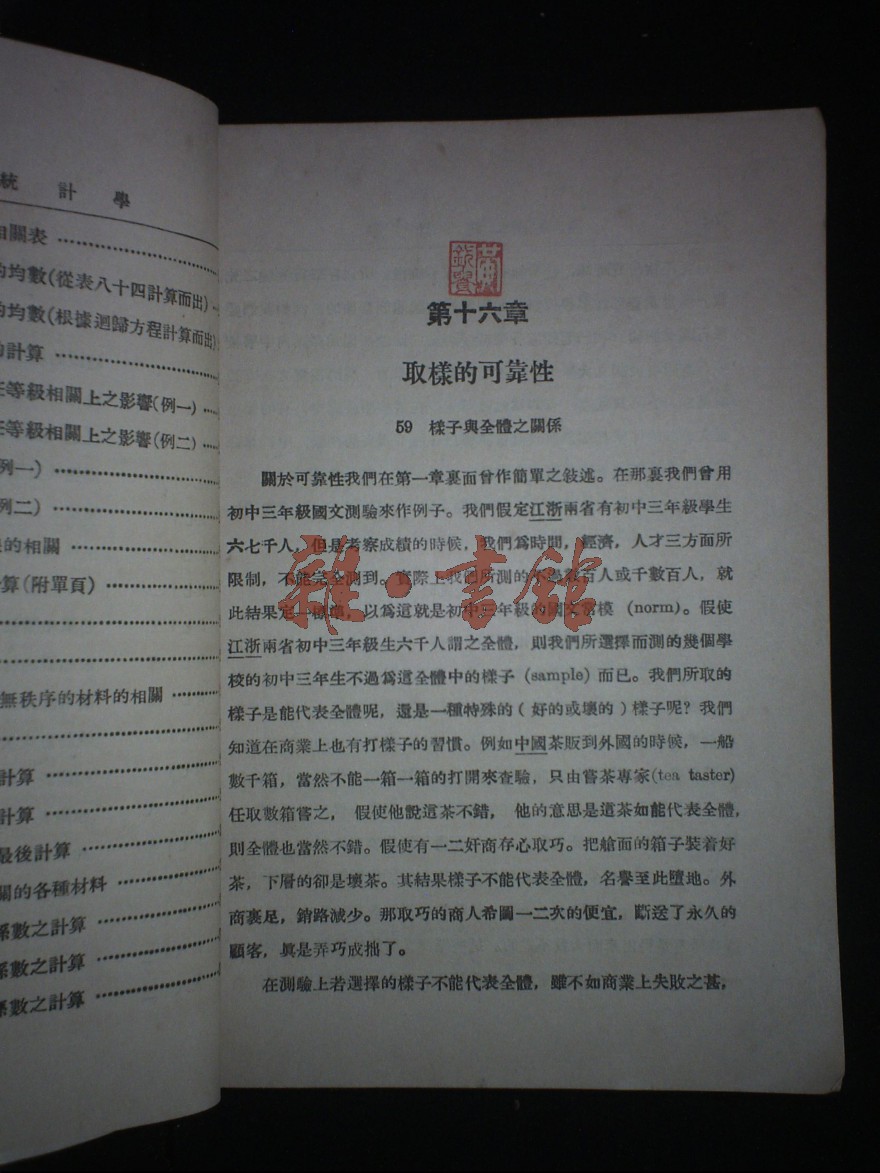 統計學
相關表
的均數(從表八十四計算而出)
的均數(根據迴歸方程計算而出)
的計算
在等級相關上之影響(例一)
在等級相關上之影響(例二)
例一)
例二)
的相關
算(附單頁)
無秩序的材料的相關
計算
計算
最後計算
關的各種材料
係數之計算
係數之計算
係數之計算
第十六章
取樣的可靠性
59 樣子與全體之關係
關於可靠性我們在第一章裏面曾作簡單之敍述。在那裏我們曾用
初中三年級國文測驗來作例子。我們假定江浙兩省有初中三年級學生
六七千人,但是考察成績的時候,我們爲時間,經濟,人才三方面所
限制,不能完全測到。實際上我們所測的不過數百人或千數百人,就
此結果定一標準,以爲這就是初中三年級的國文常模 (norm)。假使
江浙兩省初中三年級生六千人謂之全體,則我們所選擇而測的幾個學
校的初中三年生不過爲這全體中的樣子 (sample) 而已。我們所取的
樣子是能代表全體呢,還是一種特殊的(好的或壞的)樣子呢?我們
知道在商業上也有打樣子的習慣。例如中國茶販到外國的時候,一船
數千箱,當然不能一箱一箱的打開來查驗,只由嘗茶專家(tea taster)
任取數箱嘗之, 假使他說這茶不錯, 他的意思是這茶如能代表全體,
則全體也當然不錯。假使有一二奸商存心取巧。把艙面的箱子裝着好
茶,下層的卻是壞茶。其結果樣子不能代表全體,名譽至此墮地。外
商裹足,銷路減少。那取巧的商人希圖一二次的便宜,斷送了永久的
顧客,眞是弄巧成拙了。
在測驗上若選擇的樣子不能代表全體,雖不如商業上失敗之甚,
雜·書館